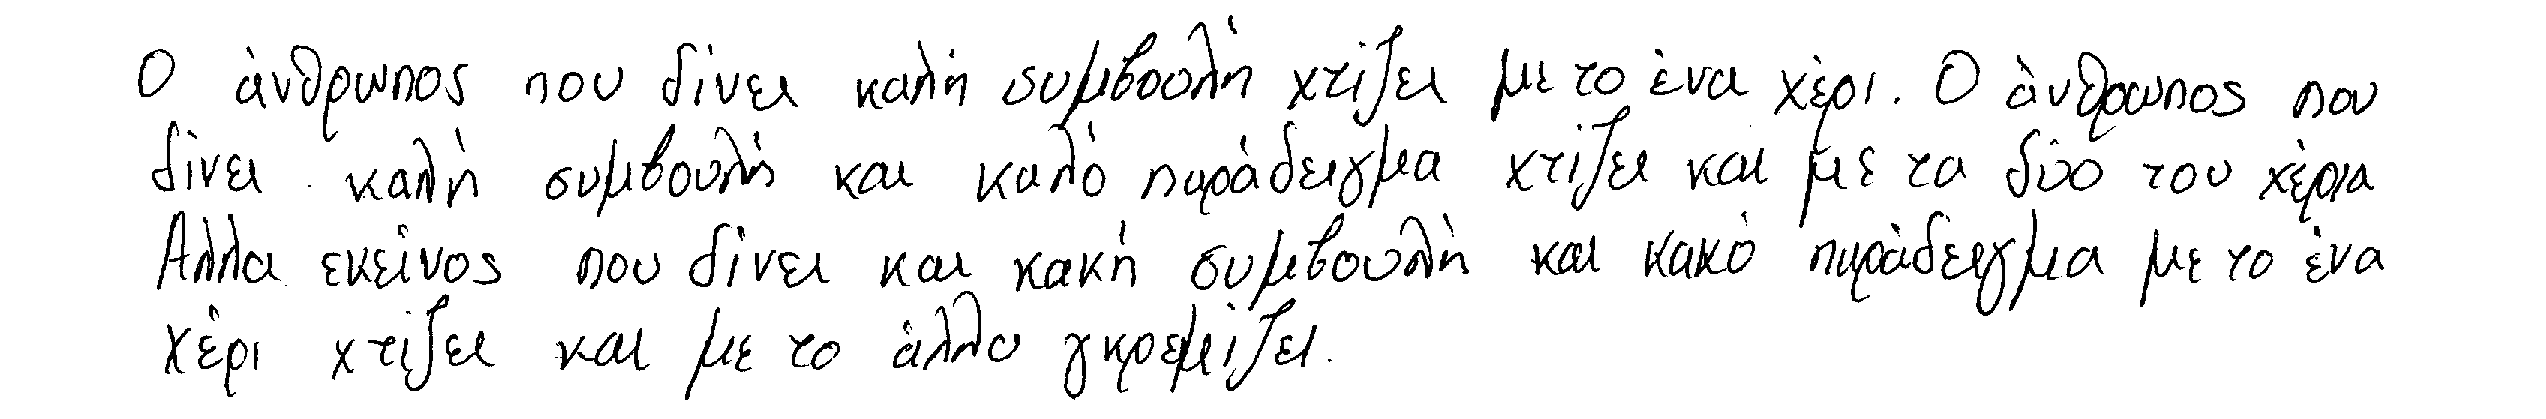 Ο άνθρωπος που δίνει καλή συμβουλή χτίζει με το ένα χέρι. Ο άνθρωπος που
δίνει καλή συμβουλή και καλό παράδειγμα χτίζει και με τα δύο του χέρια
Αλλα εκείνος που δίνει και κακή συμβουλή και κακό παράδειγμα με το ένα
χέρι χτίζει και με το άλλο γκρεμίζει.